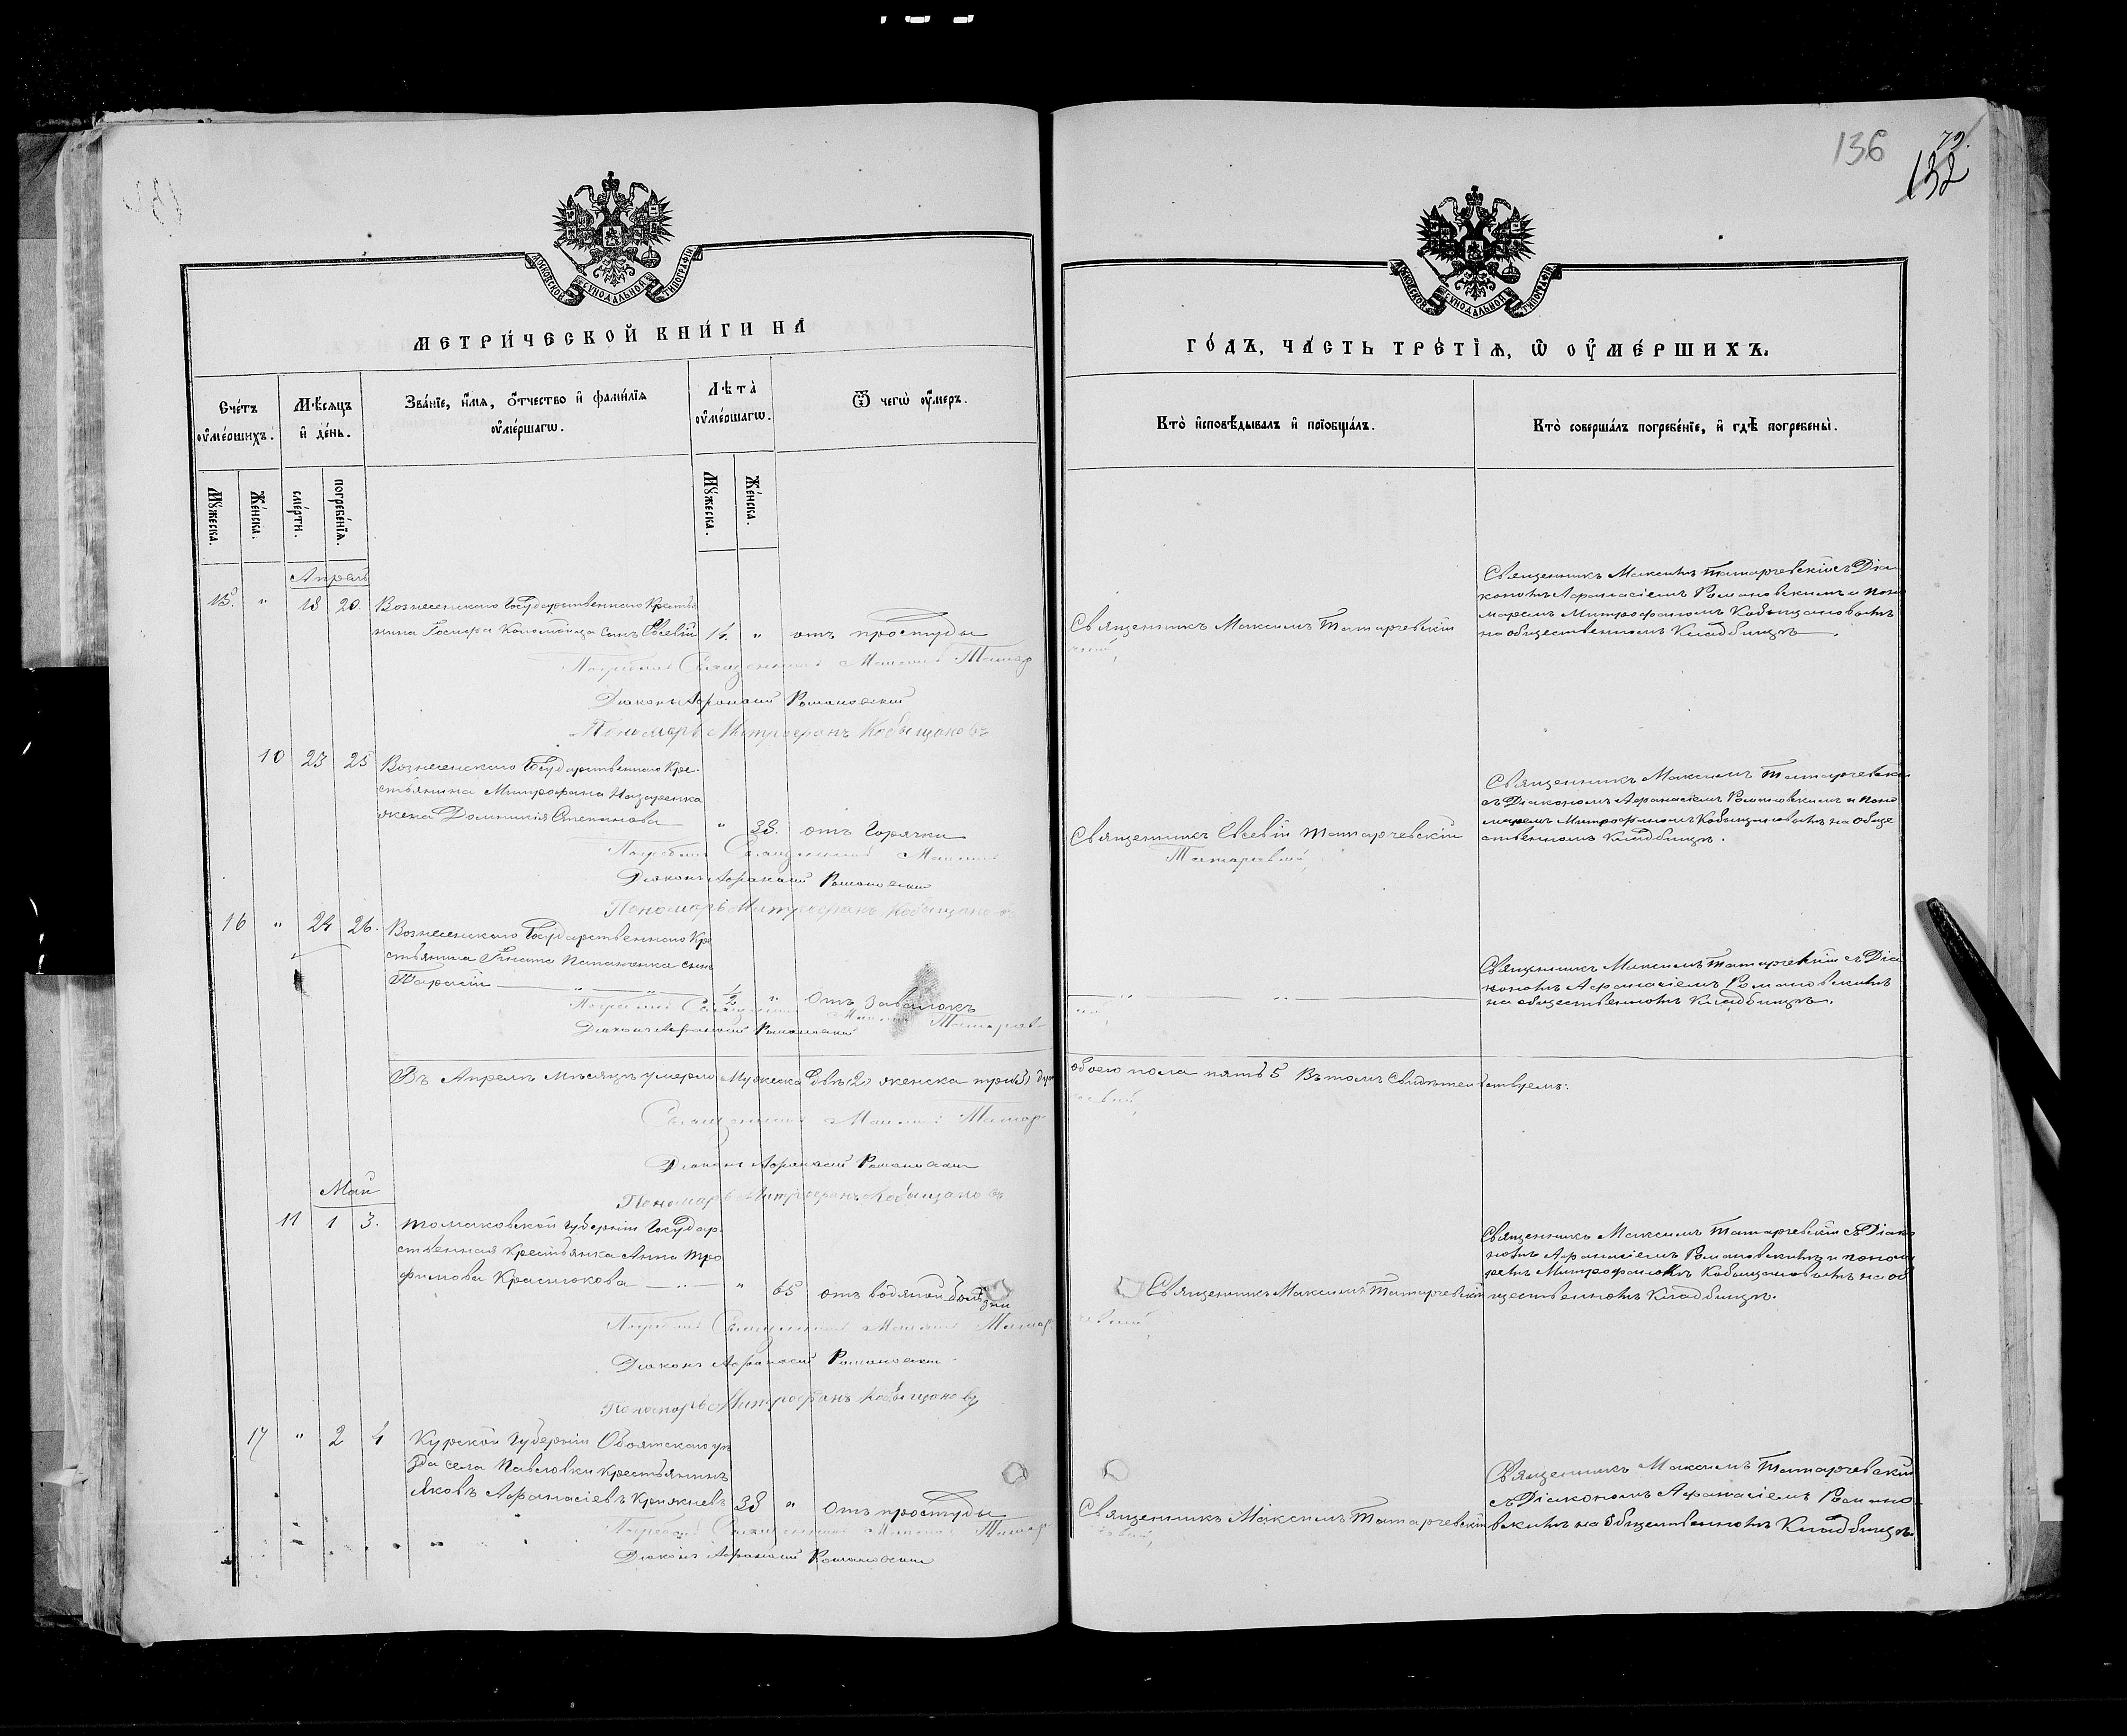 136
79.
132
МОСКОВСКОЙ СУНОДАЛЬНОЙ ТИПОГРАФІИ
МЕТРИ́ЧЕСКОЙ КНИ́ГИ НА
Сче́тъ ᲂу҆ме́ршихъ.
Мѣ́сяцъ и҆ де́нь.
Зва́нїе, и҆́мѧ, ѻ҆́тчество и҆ фами́лїѧ ᲂу҆ме́ршагѡ.
Лѣта̀ ᲂу҆ме́ршагѡ.
Ѿ чегѡ̀ ᲂу҆́меръ.
Мꙋ́жеска.
Же́нска.
сме́рти.
погребе́нїѧ.
Мꙋ́жеска.
Же́нска.
Апрель
15. " 18 20. Вознесенскаго Государственнаго Крестья
нина Госифа Коломойца сынъ Евсевій 14. " отъ простуды
Погребали Священникъ Максимъ Татар
Діаконъ Афанасій Романовскій
Пономарь Митрофанъ Кобыщановъ
10 23 25 Вознесенскаго Государственнаго Кре-
стьянина Митрофана Назаренка
жена Домникія Степанова " 38. отъ Горячки
Погребали Священникъ Максимъ
Діаконъ Афанасій Романовскій
Пономарь Митрофанъ Кобыщановъ
16 " 24 26. Вознесенскаго Государственнаго Кре
стьянина Игната сынъ
Тарасій " " ½ " Отъ завалокъ
Погребали Священникъ Максимъ Татарчев-
Діаконъ Афанасій Романовскій
Въ Апрелѣ Мѣсяцѣ умерло Мужеска двѣ (2) женска три (3) душ
Священникъ Максимъ Татар
Діаконъ Афанасій Романовскій
Пономарь Митрофанъ Кобыщановъ
Май
11 1 3. Томаковской Губерніи Государ-
ственная Крестьянка Анна Тро
фимова Краснокова " 65 отъ водяной болѣзни
Погребали Священникъ Максимъ Татар
Діаконъ Афанасій Романовскій
Пономарь Митрофанъ Кобыщановъ
17 " 2 4 Курской Губерніи Обоянскаго уѣ
зда села Павловки Крестьянинъ
Яковъ Афанасіевъ Княжневъ 38 " Отъ простуды
Погребали Священникъ Максимъ Татар
Діаконъ Афанасій Романовскій
МОСКОВСКОЙ СУНОДАЛЬНОЙ ТИПОГРАФІИ
ГО́ДЪ, ЧА́СТЬ ТРЕ́ТЇѦ, Ѡ҆ ОУ҆МЕ́РШИХЪ.
Кто̀ и҆сповѣ́дывалъ и҆ прїобща́лъ.
Кто̀ соверша́лъ погребе́нїе, и҆ гдѣ̀ погребены̀.
Священникъ Максимъ Татарчевскій
чскій,
Священникъ Максимъ Татарчевскій съ Діа
кономъ Афанасіемъ Романовскимъ и поно
маремъ Митрофаномъ Кобыщановымъ
на общественномъ Кладбищѣ.
Священникъ Евсевій Татарчевскій
Татарчевскій,
Священникъ Максимъ Татарчевскій
съ Діакономъ Афанасіемъ Романовскимъ и поно
маремъ Митрофаномъ Кобыщановымъ на обще
ственномъ Кладбищѣ.
Священникъ Максимъ Татарчевскій съ Діа
кономъ Афанасіемъ Романовскимъ
на общественномъ Кладбищѣ.
обоего пола пять 5 Въ томъ Свидѣтельствуемъ:
чевскій,
Священникъ Максимъ Татарчевскій
Священникъ Максимъ Татарчевскій съ Діако
номъ Афанасіемъ Романовскимъ и понома
ремъ Митрофаномъ Кобыщановымъ на об
щественномъ Кладбищѣ.
Священникъ Максимъ Татарчевскій
Священникъ Максимъ Татарчевскій
съ Діакономъ Афанасіемъ Романо-
вскимъ на Общественномъ Кладбищѣ.